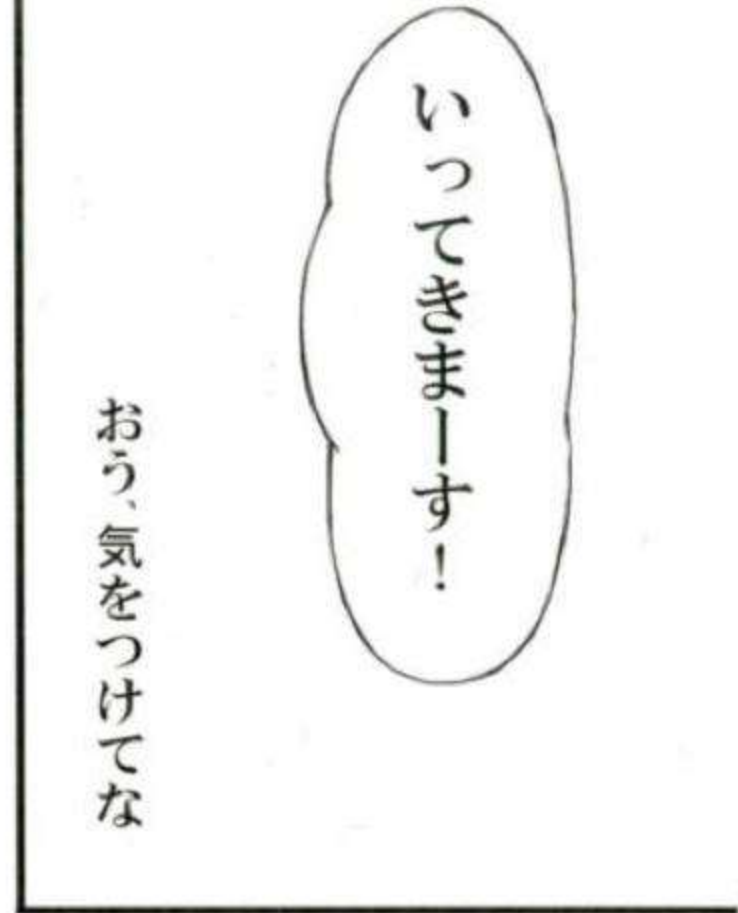 いってきまーす！
おう、気をつけてな